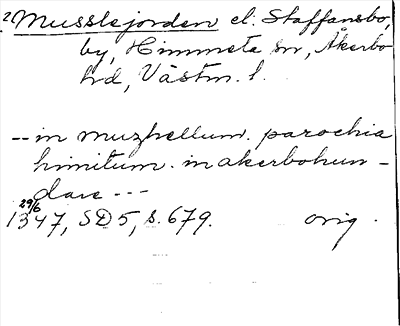 2 Musslejorden el. Staffansbo,
by, Himmeta sn, Åkerbo
hd, Västm. l.
-- in muzhellum. parochia
himitum. in akerbohun-
dare ---
29/6
1347, SD 5, s. 679. orig.